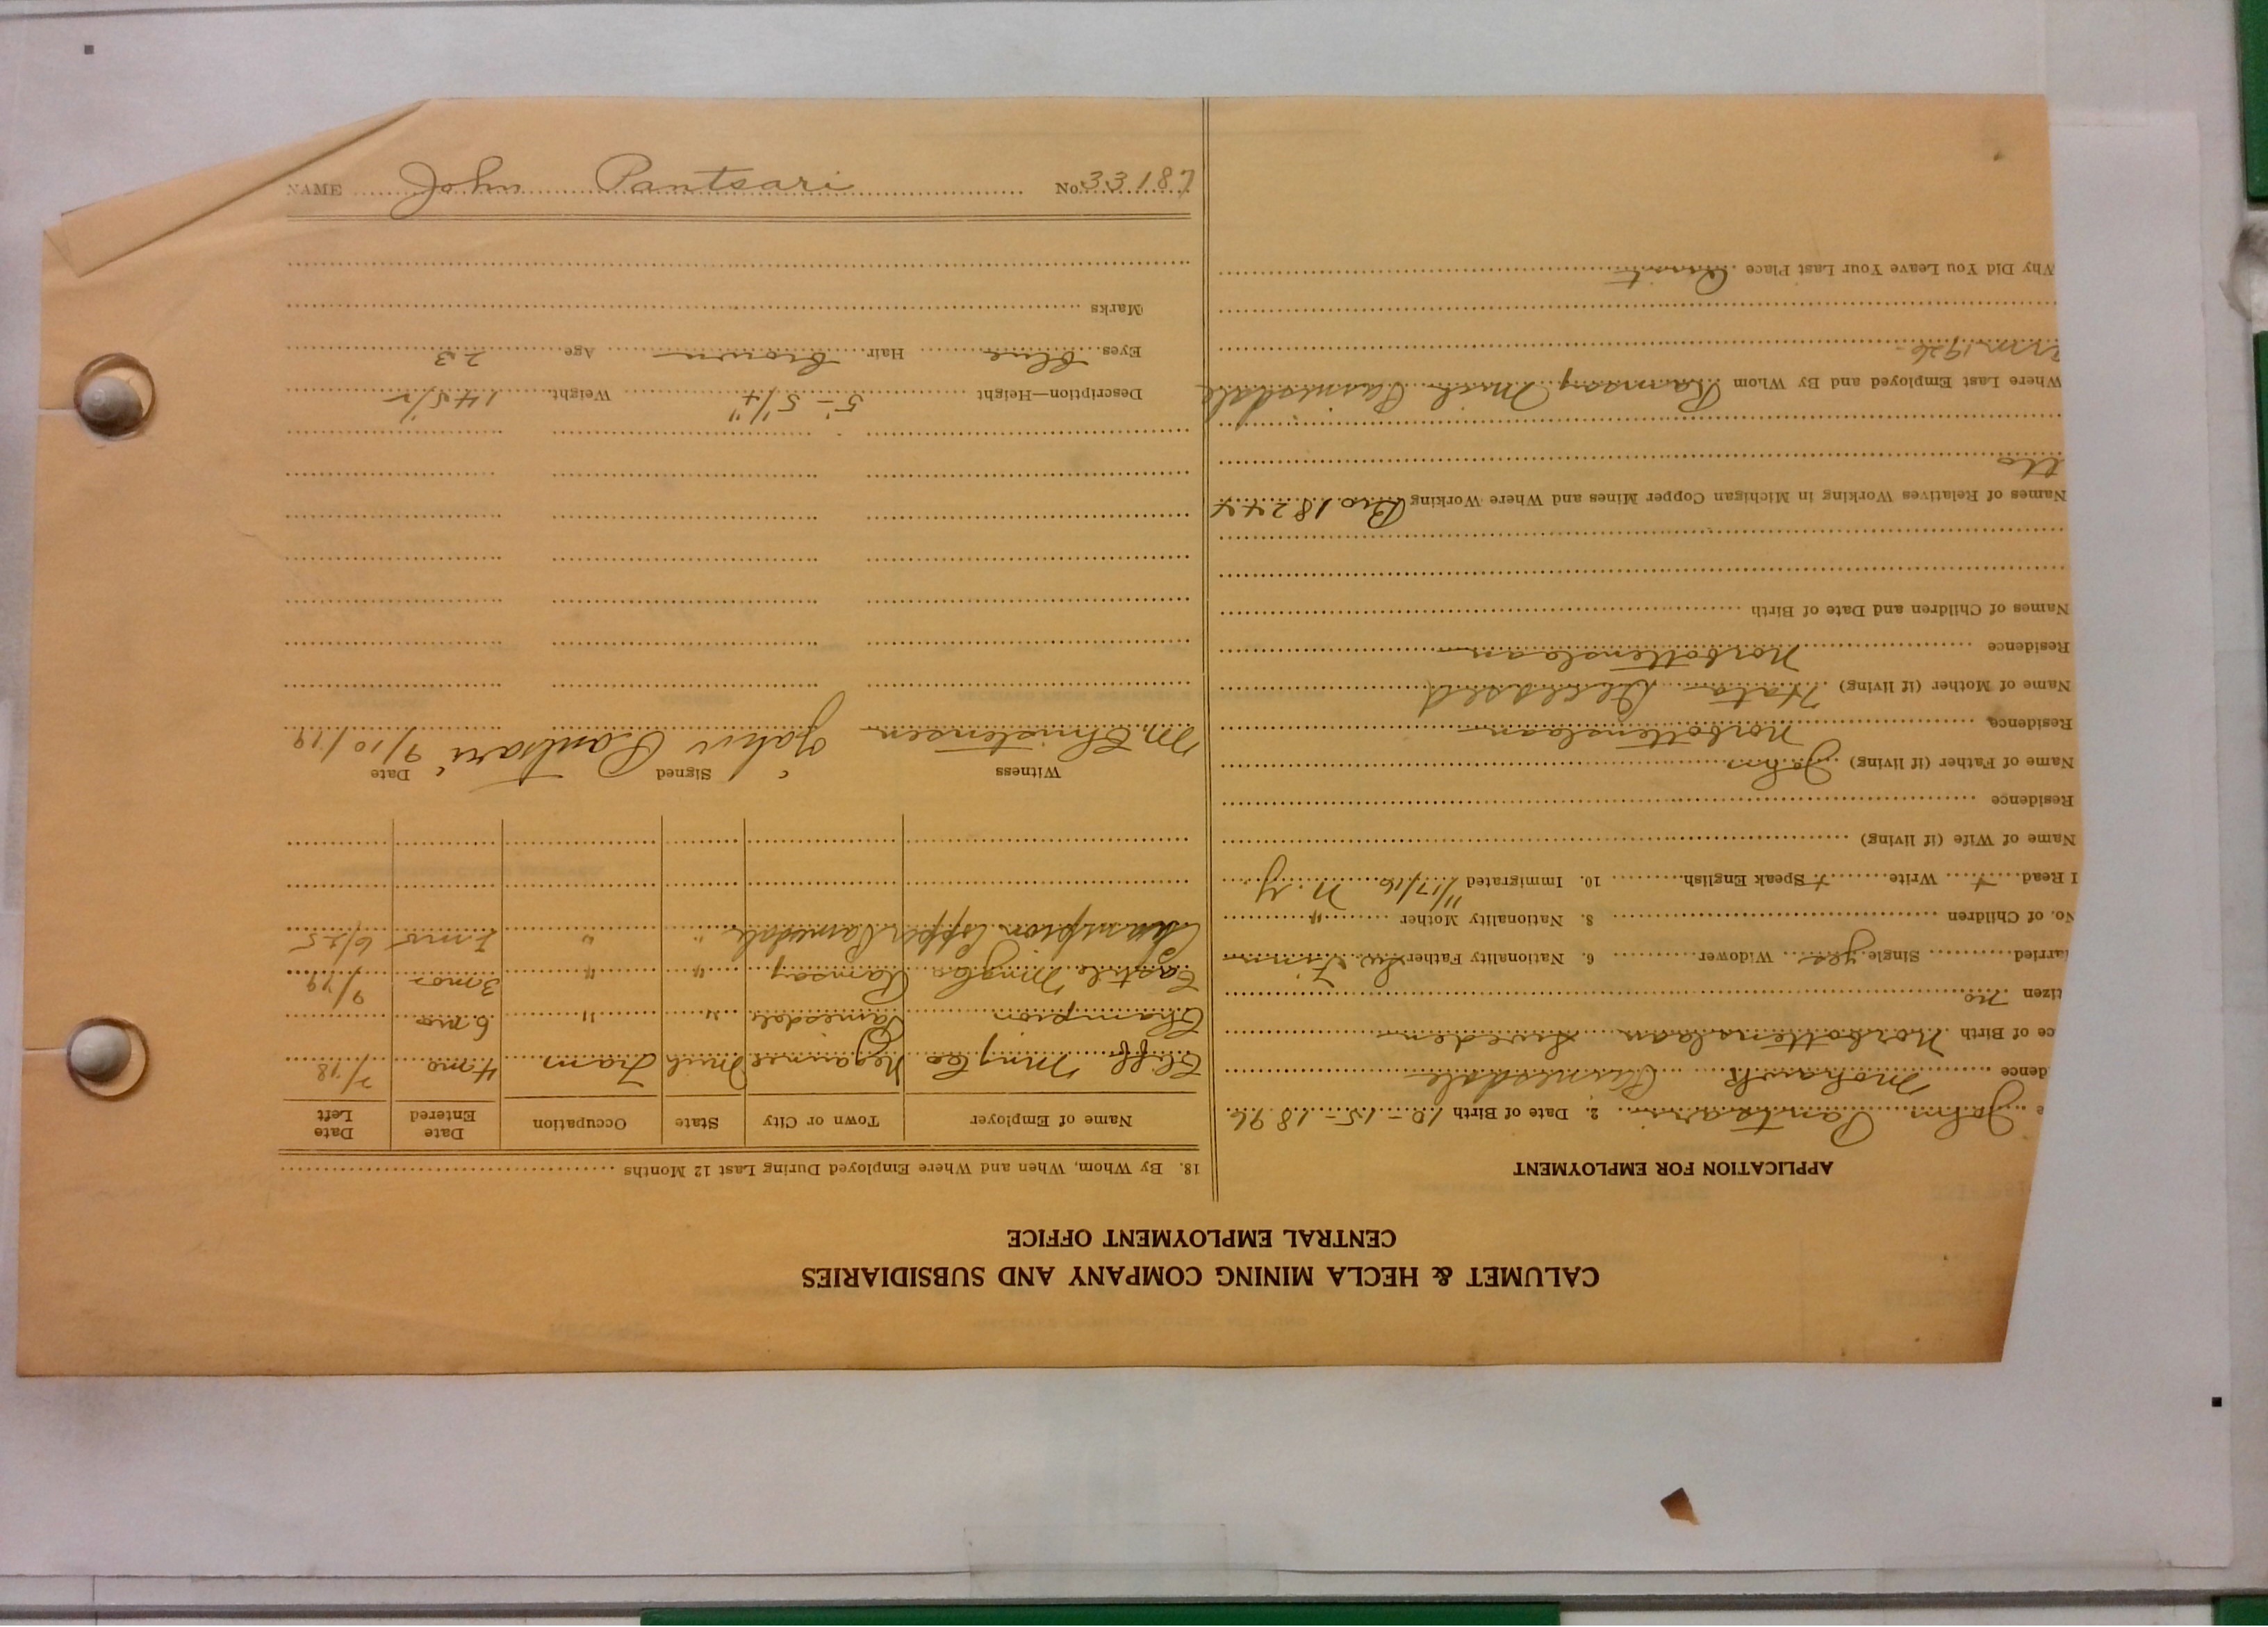 CALUMET & HECLA MINING COMPANY AND SUBSIDIARIES
CENTRAL EMPLOYMENT OFFICE
APPLICATION FOR EMPLOYMENT
e John Pantsari 2. Date of Birth 10-15-1896
dence Mohawk Painesdale
ce of Birth Norbottenslaan Sweden
tizen no
arried Single yes Widower 6. Nationality Father Sw. Finn
No. of Children 8. Nationality Mother "
I Read + Write + Speak English 10. Immigrated 11/17/16 N.Y.
Name of Wife (if living)
Residence
Name of Father (if living) John
Residence Norbottenslaan
Name of Mother (if living) Deceased
Residence Norbottenslaan
Names of Children and Date of Birth
Names of Relatives Working in Michigan Copper Mines and Where Working Bro 18244
Where Last Employed and By Whom Ramsay Mich Painesdale
1926
Why Did You Leave Your Last Place Quit
18. By Whom, When and Where Employed During Last 12 Months
Name of Employer Town or City State Occupation Date Entered Date Left
Cliff Mng Co Negaunee Mich Tram 4 mo 7/18
Champion Painesdale " " 6 mo
Castile Mng Co Ramsay " " 3 mos 9/19
Champion Copper Painesdale " " 6/25
Witness Signed Date
M. Christensen John Pantsari 9/10/19
Description—Height 5'-5 1/4" Weight 145 1/2
Eyes Blue Hair Brown Age 23
Marks
NAME John Pantsari No. 33187